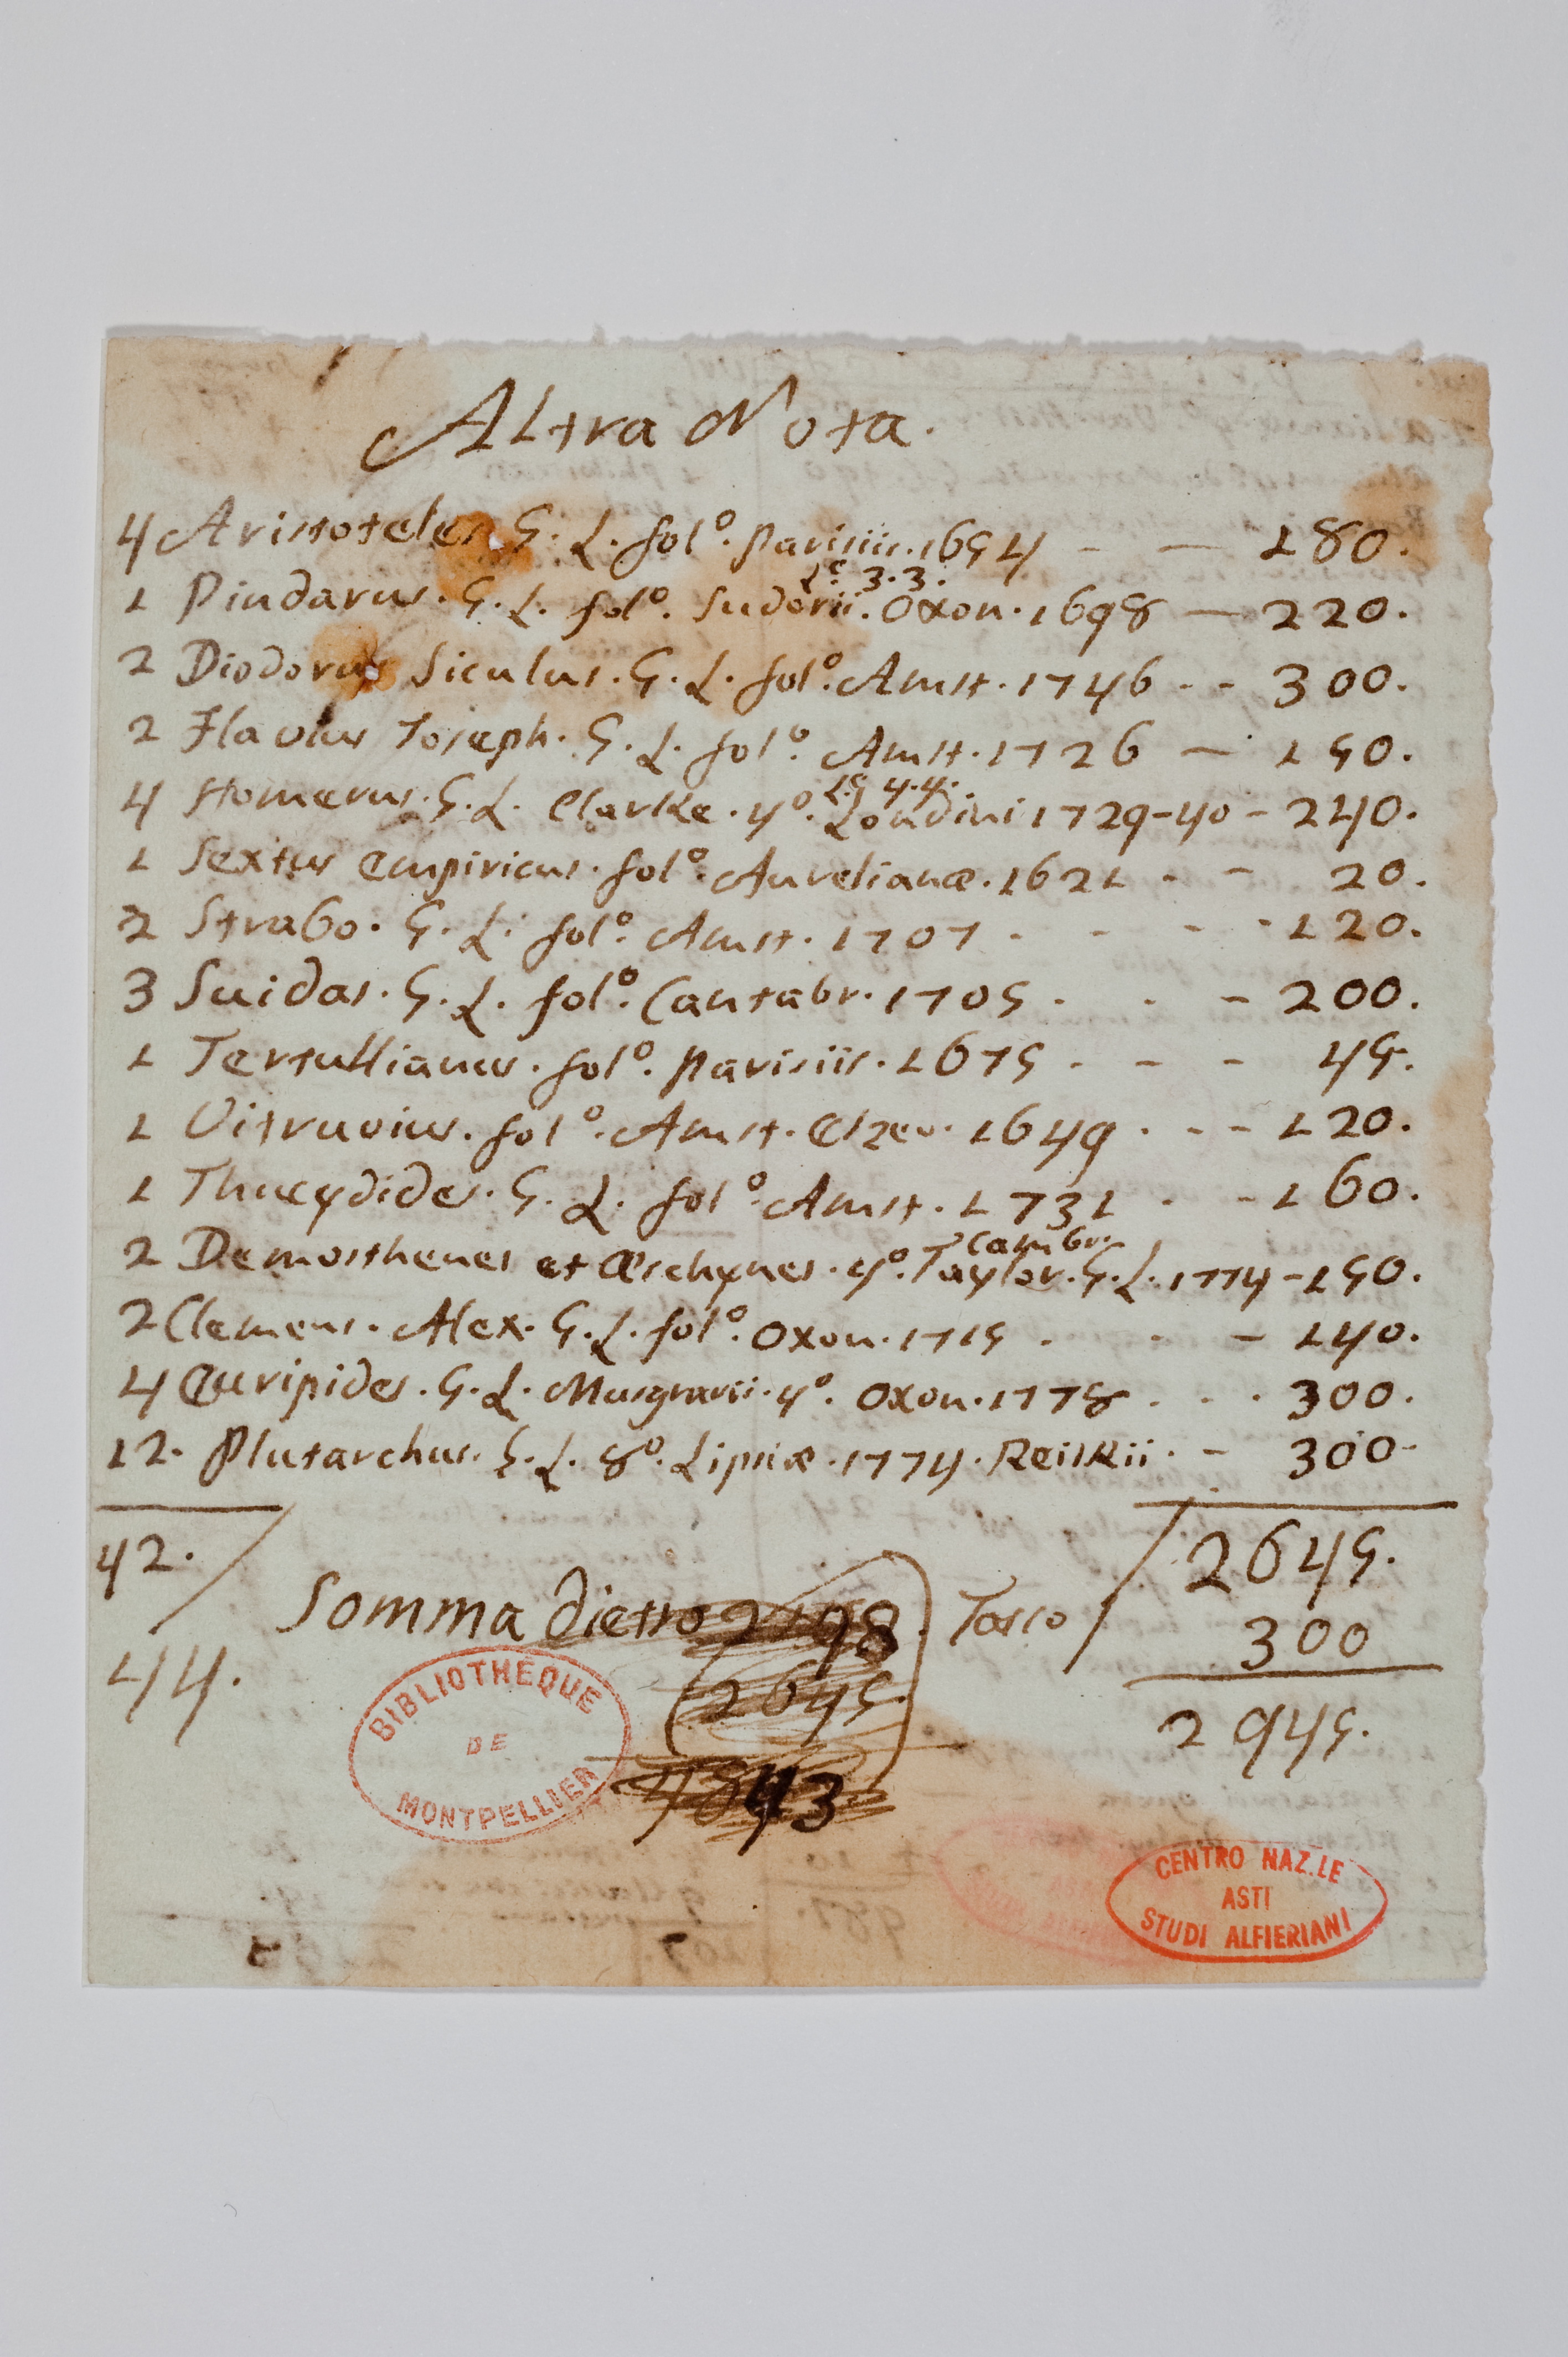 Altra Nota.
4 Aristoteles. G. L. folº. Parisiis. 1654 - - 180.
L.ᵉ 3.3.
1 Pindarus. G. L. folº. Sudorii. Oxon. 1698 - 220.
2 Diodorus Siculus. G. L. folº. Amst. 1746 - - 300.
2 Flavius Joseph. G. L. folº. Amst. 1726 - 150.
L.ᵉ 4.4.
4 Homerus. G. L. Clarke. 4º. Londini 1729-40 - 240.
1 Sextus Empiricus. folº. Aurelianæ. 1621 - - 20.
2 Strabo. G. L. folº. Amst. 1707 - - - - 120.
3 Suidas. G. L. folº. Cantabr. 1705 . - - 200.
1 Tertullianus. folº. Parisiis. 1675 - - - 45.
1 Vitruvius. folº. Amst. Elzev. 1649 . - - 120.
1 Thucydides. G. L. folº. Amst. 1731 . - 160.
Cambr.
2 Demosthenes et Æschynes. 4º. Taylor. G. L. 1774 - 150.
2 Clemens. Alex. G. L. folº. Oxon. 1715 . - - 140.
4 Euripides. G. L. Musgravii. 4º. Oxon. 1778 . . . 300.
12. Plutarchus. G. L. 8º. Lipsiæ. 1774. Reiskii. - 300.
42. 2645.
Somma dietro 2198. Tasso 300
44. 2645. 2945.
4843
BIBLIOTHÈQUE
DE
MONTPELLIER
CENTRO NAZ.LE
ASTI
STUDI ALFIERIANI